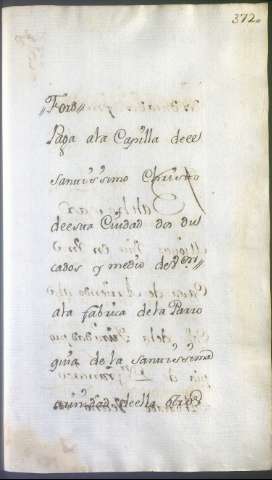 372.
Foro
Paga ala Capilla de el
santissimo Christo
de esta Ciudad dos du
cados y medio de Von
ala fabrica de la Parro
quia de la santissima
trinidad de ella otros